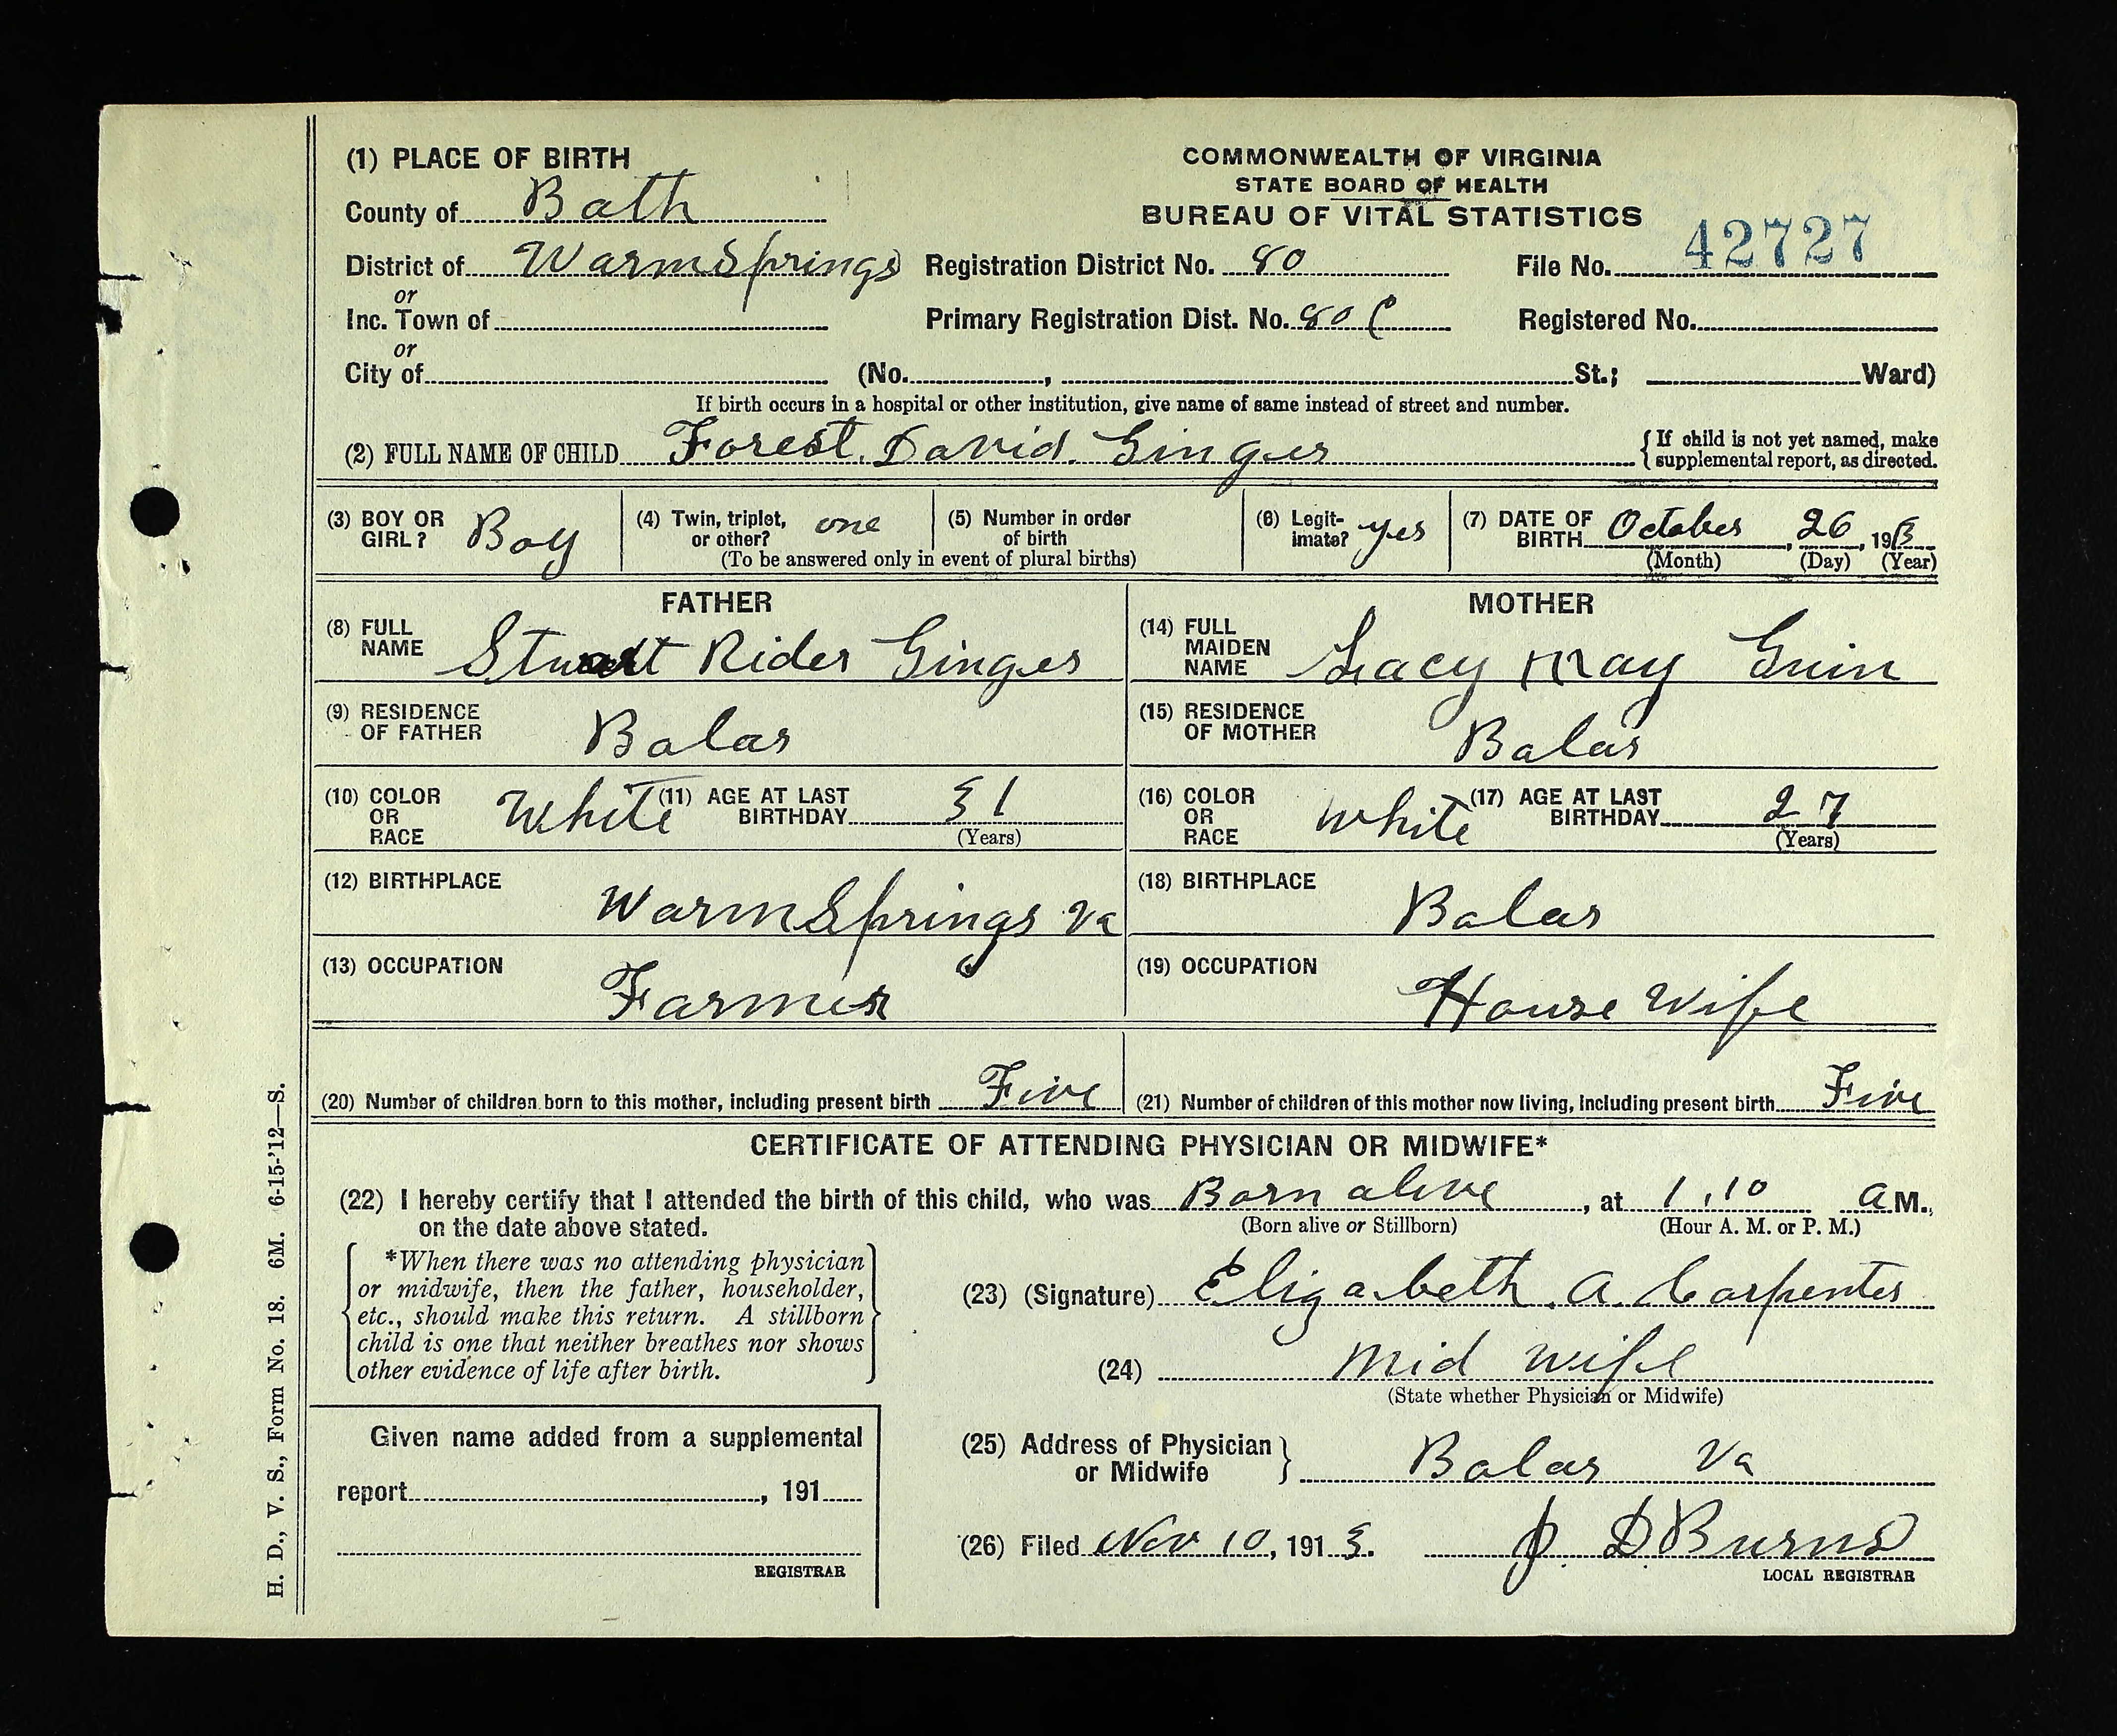 (1) PLACE OF BIRTH
COMMONWEALTH OF VIRGINIA
STATE BOARD OF HEALTH
BUREAU OF VITAL STATISTICS
County of Bath
District of WarmSprings Registration District No. 80 File No. 42727
or
Inc. Town of Primary Registration Dist. No. 80 C Registered No.
or
City of (No. , St.; Ward)
If birth occurs in a hospital or other institution, give name of same instead of street and number.
(2) FULL NAME OF CHILD Forest David Ginger { If child is not yet named, make supplemental report, as directed.
(3) BOY OR GIRL? Boy (4) Twin, triplet, or other? one (5) Number in order of birth (6) Legitimate? yes (7) DATE OF BIRTH October, 26, 1913
(To be answered only in event of plural births) (Month) (Day) (Year)
FATHER
(8) FULL NAME Stuart Rider Ginger
(9) RESIDENCE OF FATHER Bolar
(10) COLOR OR RACE White (11) AGE AT LAST BIRTHDAY 31
(Years)
(12) BIRTHPLACE WarmSprings Va
(13) OCCUPATION Farmer
MOTHER
(14) FULL MAIDEN NAME Lacy May Guin
(15) RESIDENCE OF MOTHER Bolar
(16) COLOR OR RACE White (17) AGE AT LAST BIRTHDAY 27
(Years)
(18) BIRTHPLACE Bolar
(19) OCCUPATION House Wife
(20) Number of children born to this mother, including present birth Five (21) Number of children of this mother now living, including present birth Five
CERTIFICATE OF ATTENDING PHYSICIAN OR MIDWIFE*
(22) I hereby certify that I attended the birth of this child, who was Born alive, at 1.10 a M.,
on the date above stated. (Born alive or Stillborn) (Hour A. M. or P. M.)
*When there was no attending physician
or midwife, then the father, householder,
etc., should make this return. A stillborn
child is one that neither breathes nor shows
other evidence of life after birth.
(23) (Signature) Elizabeth A. Carpenter
(24) Mid Wife
(State whether Physician or Midwife)
Given name added from a supplemental
report , 191
REGISTRAR
(25) Address of Physician or Midwife } Bolar Va
(26) Filed Nov 10, 1913. J. D Burns
LOCAL REGISTRAR
H. D., V. S., Form No. 18. 6M. 6-15-'12—S.